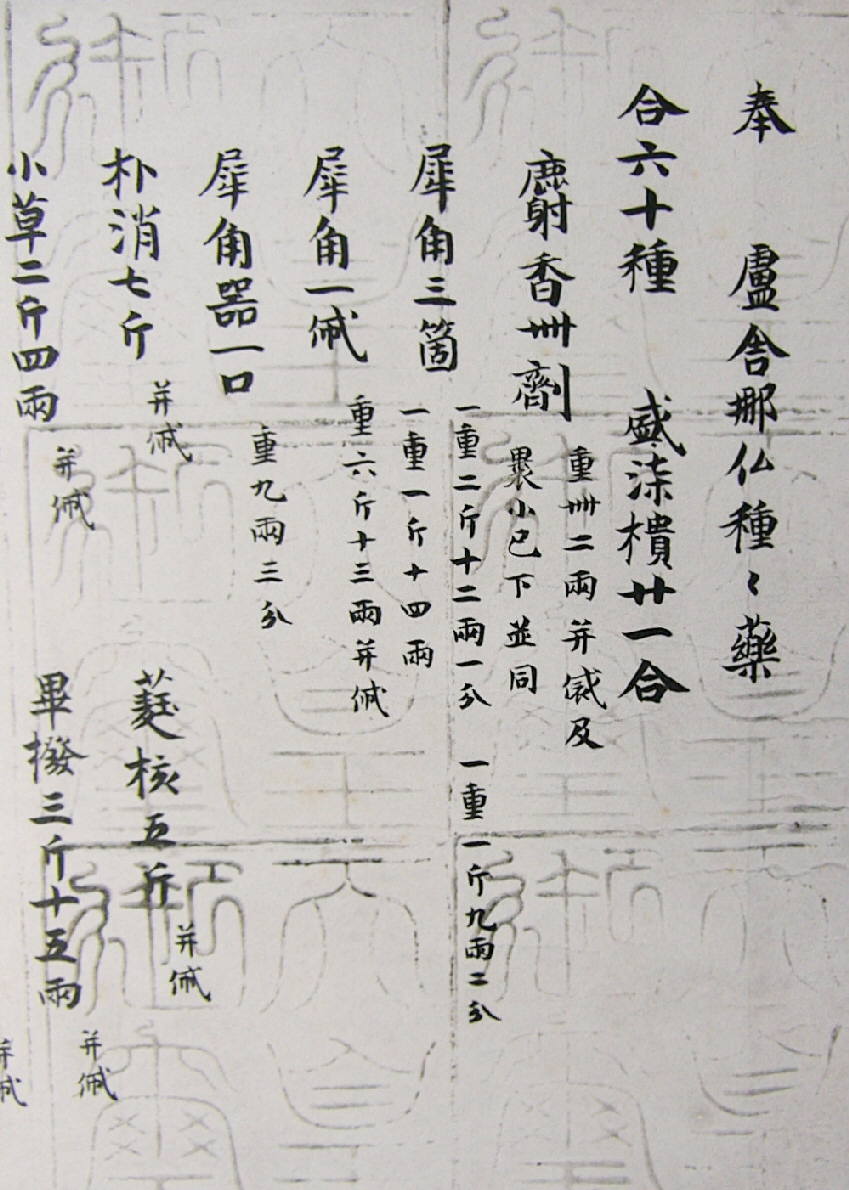 奉 盧舎那仏種々薬
合六十種 盛漆樻廿一合
麝香卌劑 重卌二兩并帒及
褁小已下並同
犀角三箇 一重二斤十二兩一分 一重一斤九兩二分
一重一斤十四兩
犀角一帒 重六斤十三兩并帒
犀角器一口 重九兩三分
朴消七斤 并帒 蕤核五斤 并帒
小草二斤四兩 并帒 畢撥三斤十五兩 并帒
并帒